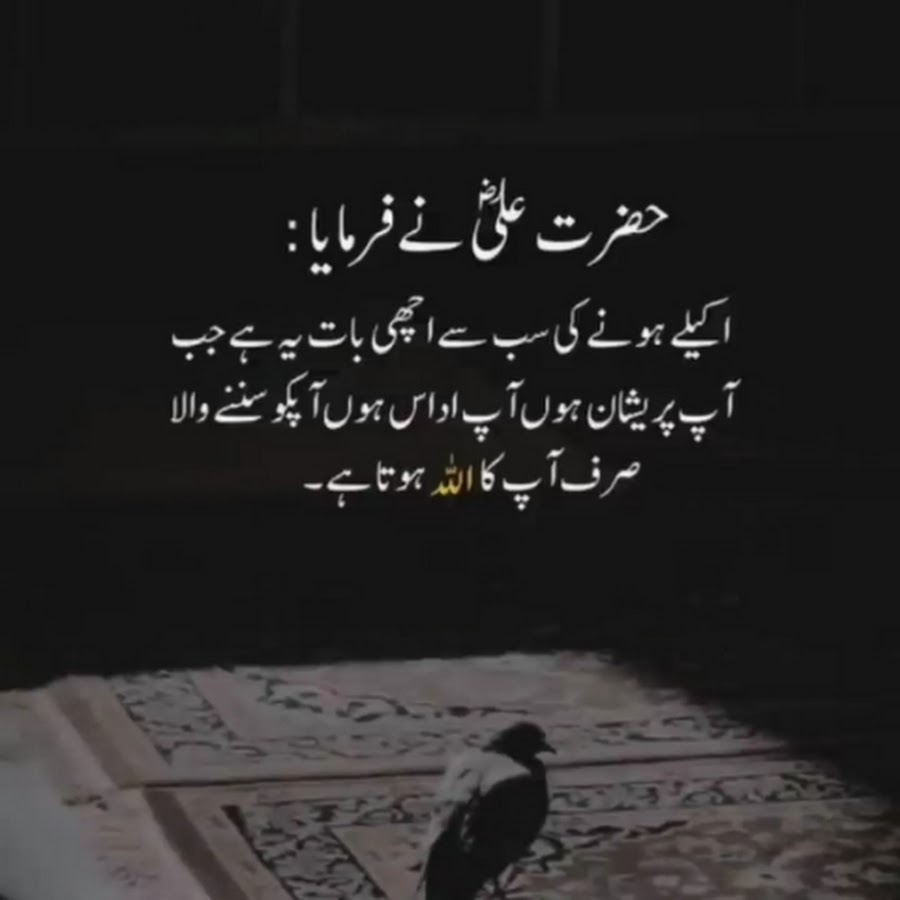 حضرت علیؓ نے فرمایا:
اکیلے ہونے کی سب سے اچھی بات یہ ہے جب
آپ پریشان ہوں آپ اداس ہوں آپکو سننے والا
صرف آپ کا اللہ ہوتا ہے۔